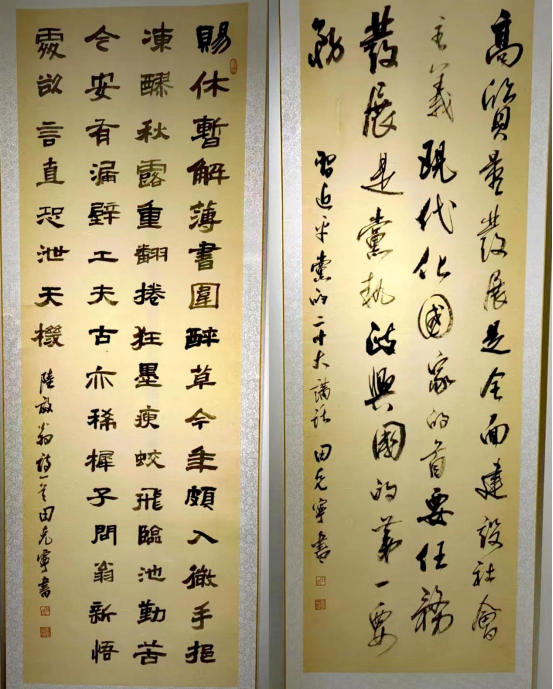 高質量發展是全面建設社會
主義現代化國家的首要任務
發展是黨執政興國的第一要
務
習近平黨的二十大講話 田克寧書
賜休暫解薄書圍醉草今年頗入微手挹
凍醪秋露重翻捲狂墨瘦蛟飛臨池勤苦
今安有漏壁工夫古亦稀穉子問翁新悟
處欲言直恐泄天機
陸放翁詩一首田克寧書